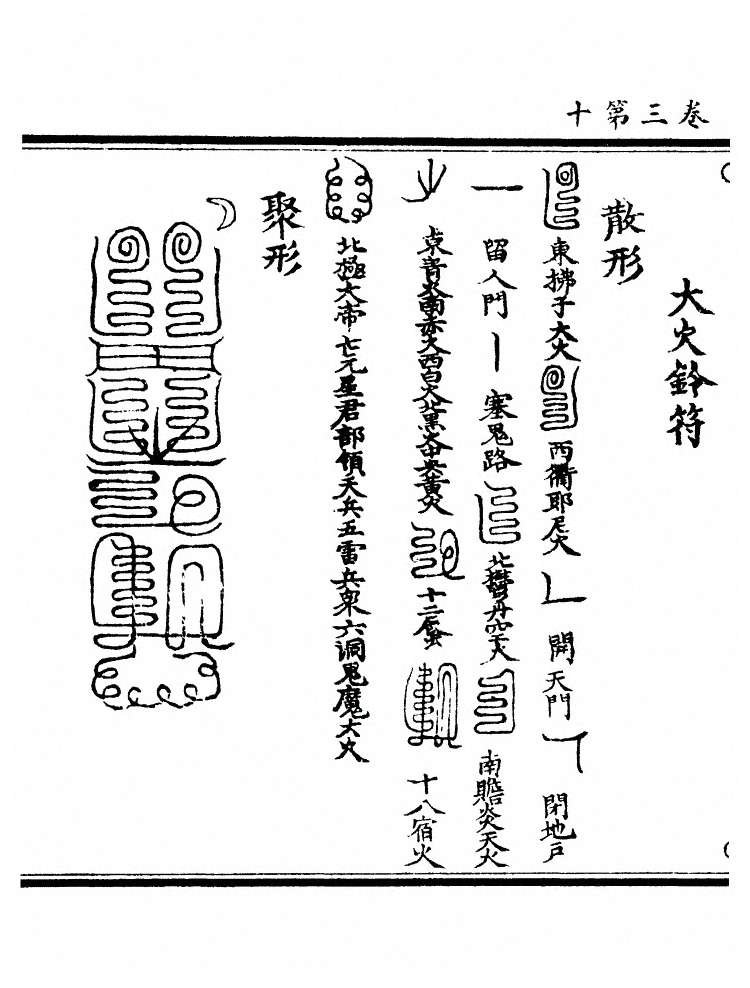 卷三第十
大火鈴符
散形
東拂子大火 西衢耶尼火 開天門 閉地戶
留人門 塞鬼路 北鬱丹 火 南贍炎天火
東青火南赤火西白火北黑火中央黃火 十二 十八宿火
北極大帝七元星君部領天兵五雷兵衆六洞鬼魔大火
聚形